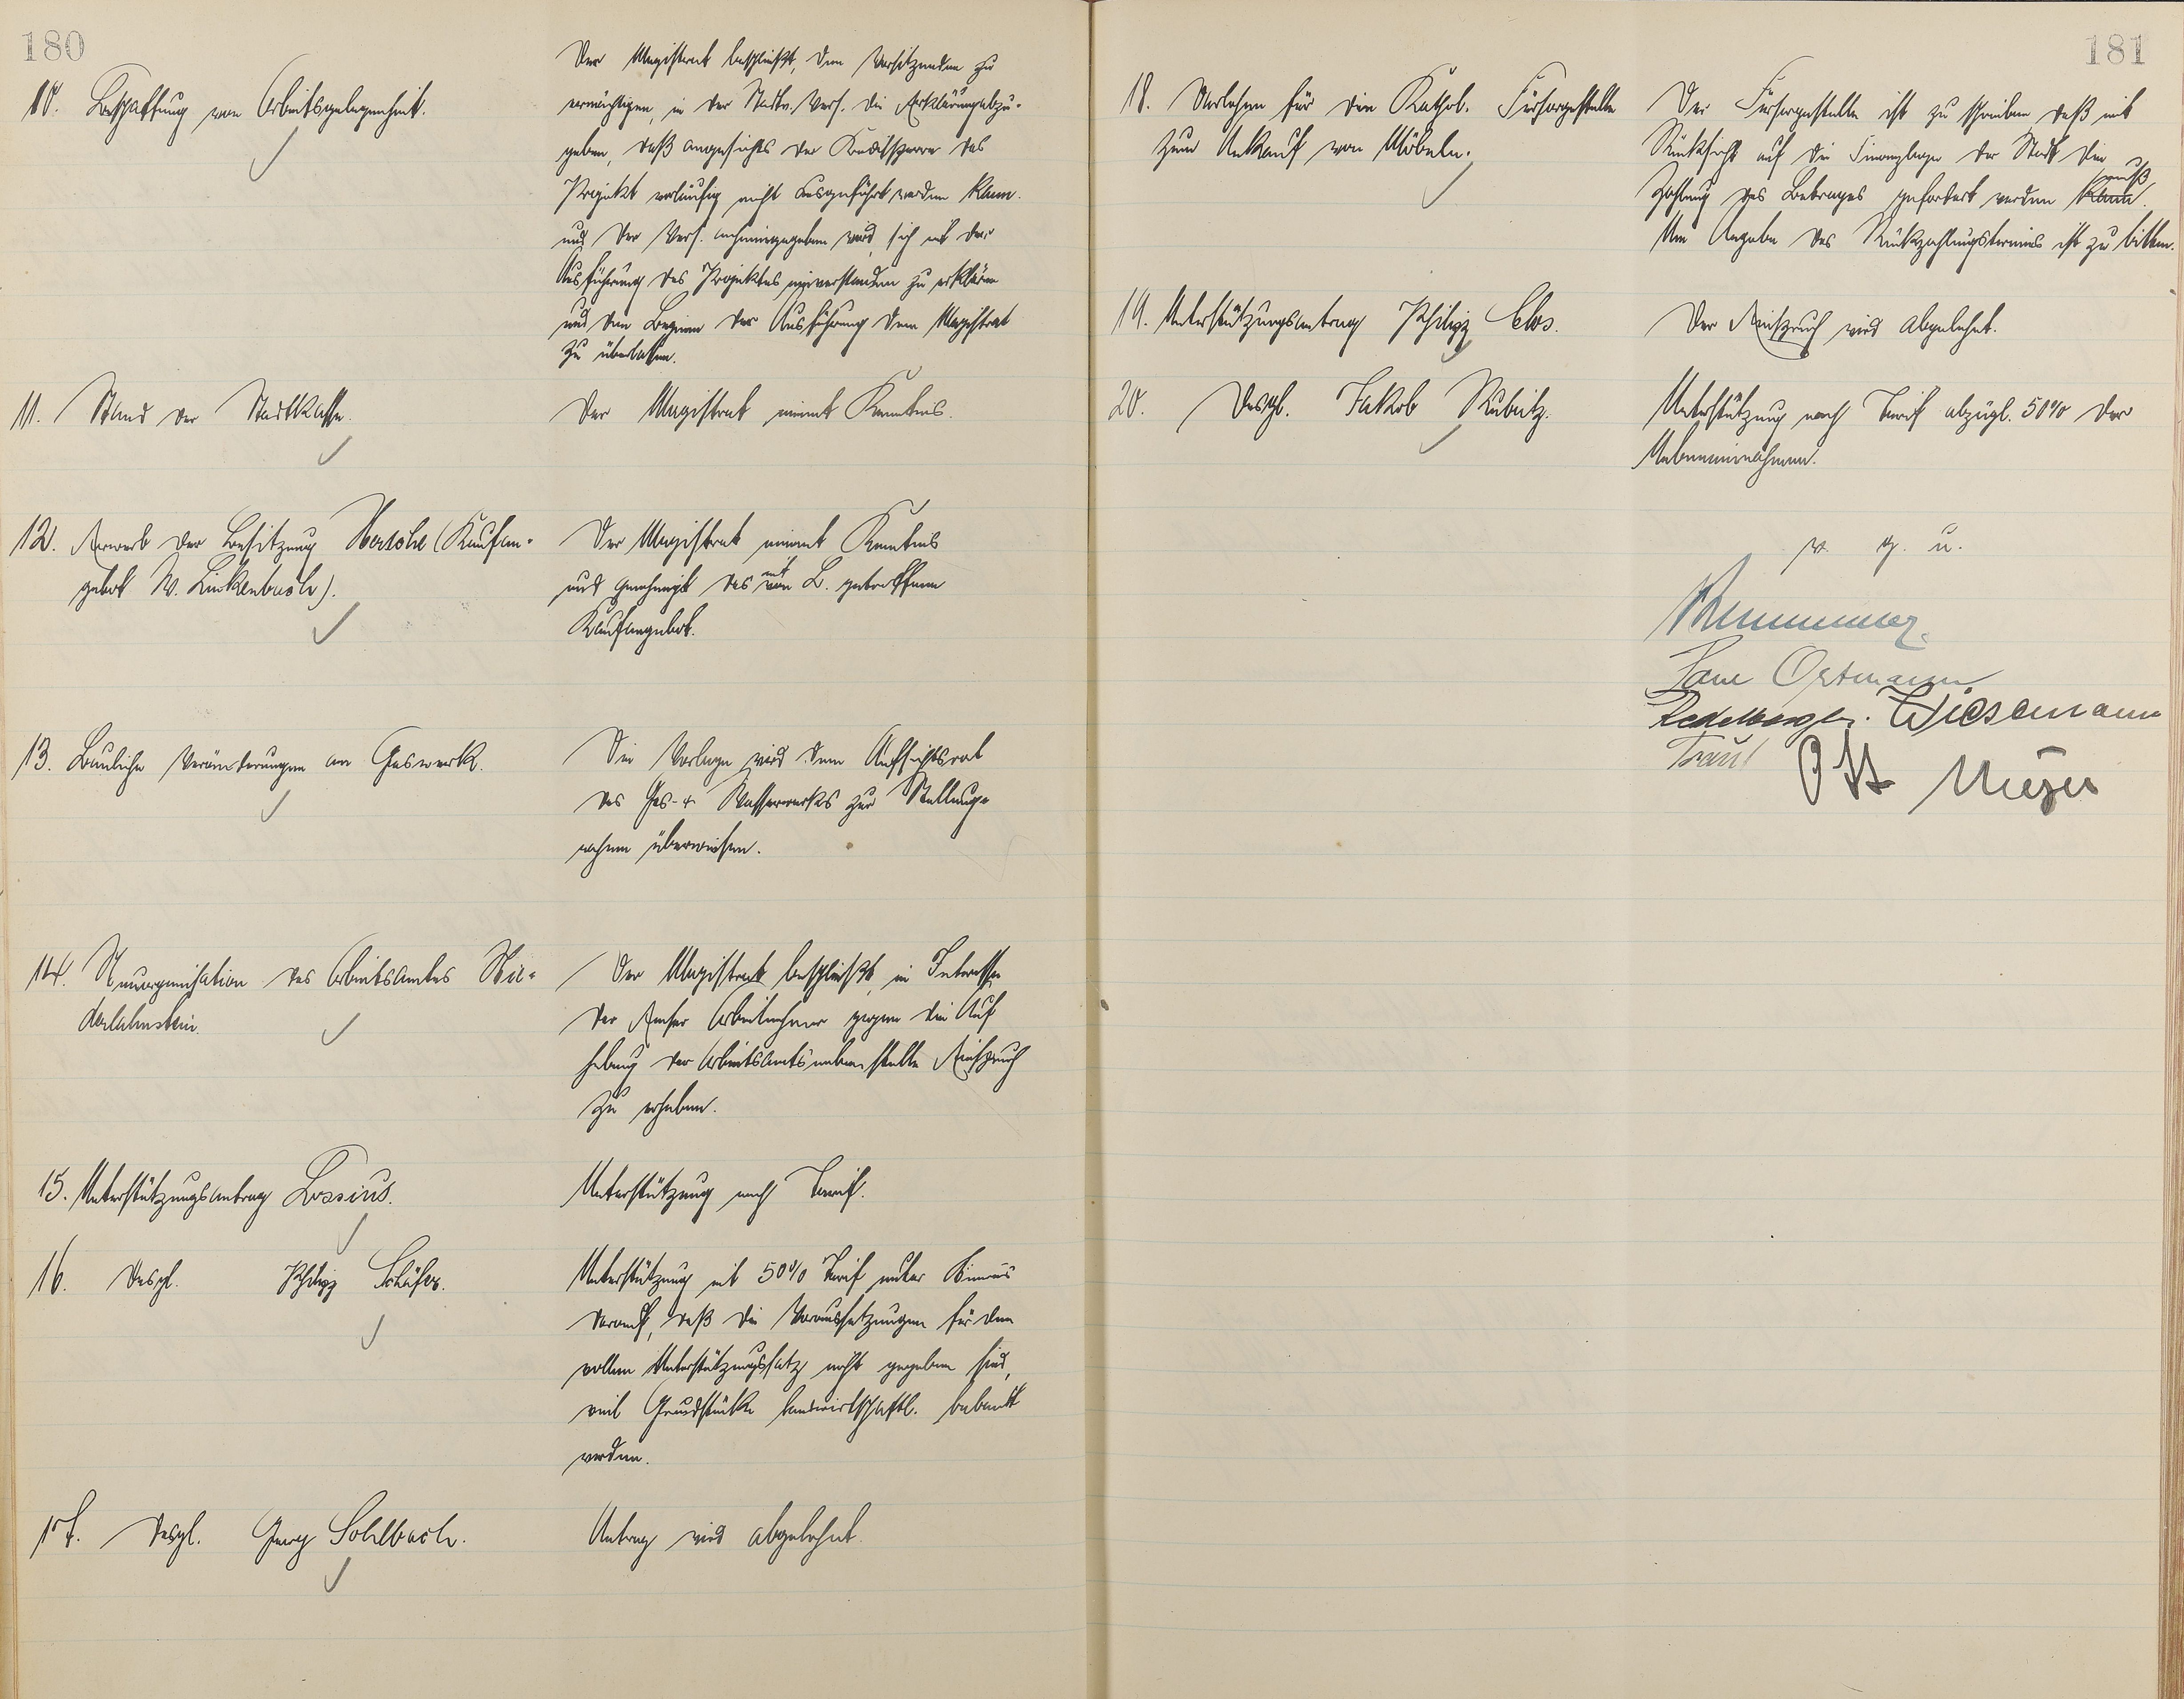 180
10. Beschaffung von Arbeitsgelegenheit.
Der Magistrat beschließt, den Vorsitzenden zu
ermächtigen, in der Stadtv. Vers. die Erklärung abzu-
geben, daß angesichts der Kreditsperre das
Projekt vorläufig nicht ausgeführt werden kann.
und der Vers. anheimgegeben wird, sich mit der
Ausführung des Projektes einverstanden zu erklären
und den Beginn der Ausführung dem Magistrat
zu überlassen.
11. Stand der Stadtkasse.
Der Magistrat nimmt Kenntnis.
12. Erwerb der Besitzung (Kaufan-
gebot W. Linkenbach).
Der Magistrat nimmt Kenntnis
und genehmigt das mit von L. getroffene
Kaufangebot.
13. Bauliche Veränderungen am Gaswerk.
Die Vorlage wird dem Aufsichtsrat
des Gas- & Wasserwerks zur Stellung-
nahme überwiesen.
14. Neuorganisation des Arbeitsamtes Nie-
derlahnstein.
Der Magistrat beschließt, im Interesse
der Emser Arbeitnehmer gegen die Auf
hebung der Arbeitsamtsnebenstelle Einspruch
zu erheben.
15. Unterstützungsantrag Lossius.
Unterstützung nach Tarif.
16. Desgl. Philipp Schäfer.
Unterstützung mit 50% Tarif unter Hinweis
darauf, daß die Voraussetzungen für den
vollen Unterstützungssatz nicht gegeben sind,
weil Grundstücke landwirtschaftl. bebaut
werden.
17. Desgl. Georg Sohlbach.
Antrag wird abgelehnt.
181
18. Darlehen für die Kathol. Fürsorgestelle
zum Ankauf von Möbeln.
Der Fürsorgestelle ist zu schreiben daß mit
Rücksicht auf die Finanzlage der Stadt die
Zahlung des Betrages gefordert werden kann muß.
Um Angabe des Rückzahlungstermins ist zu bitten.
19. Unterstützungsantrag Philipp Clos.
Der Einspruch wird abgelehnt.
20. Desgl. Jakob Kubitz.
Unterstützung nach Tarif abzügl. 50% der
Nebeneinnahmen.
v. g. u.
Ortmann
Wiesemann
Traul
Ott Meyer